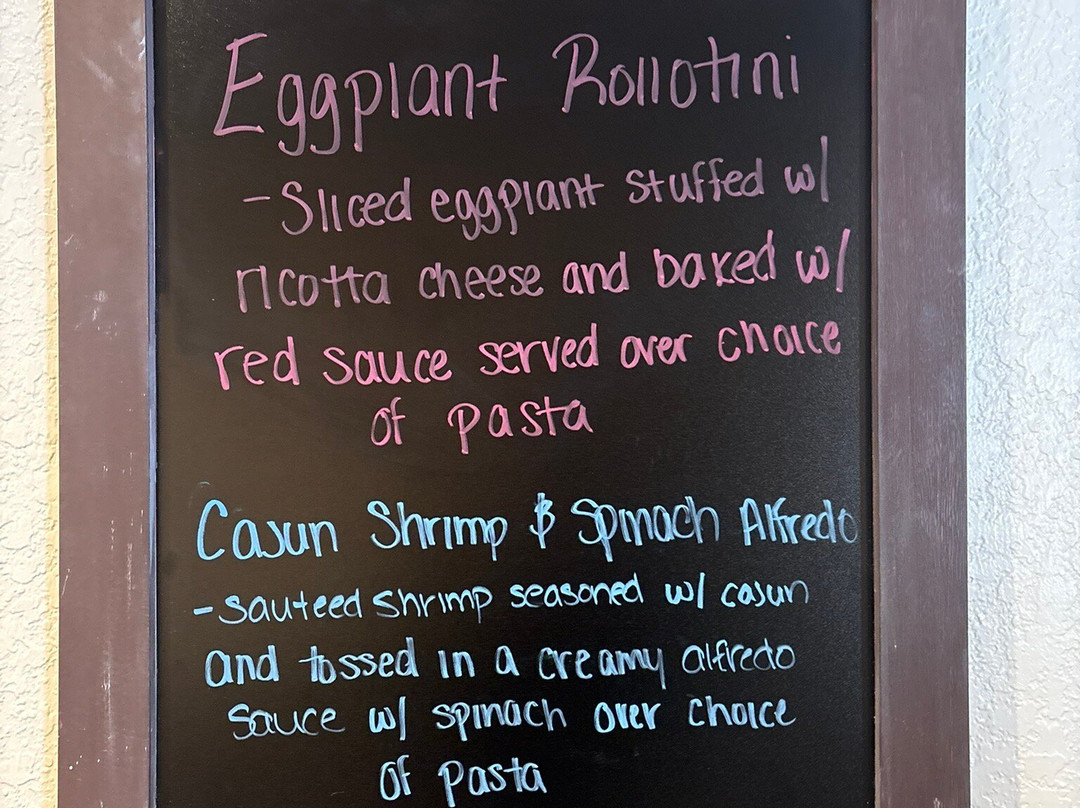 Eggplant Rollotini
-Sliced eggplant stuffed w/
ricotta cheese and baked w/
red sauce served over choice
of pasta
Cajun Shrimp & Spinach Alfredo
-sauteed shrimp seasoned w/ cajun
and tossed in a creamy alfredo
sauce w/ spinach over choice
of pasta